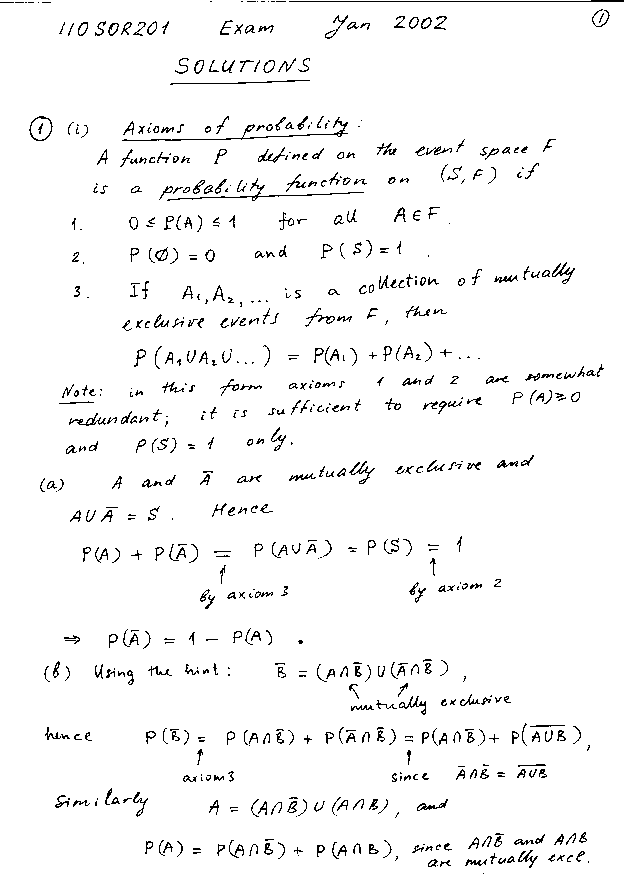 110SOR201 Exam Jan 2002 ①
SOLUTIONS
① (i) Axioms of probability:
A function P defined on the event space F
is a probability function on (S, F) if
1. 0 ≤ P(A) ≤ 1 for all A ∈ F.
2. P(∅) = 0 and P(S) = 1.
3. If A₁, A₂, ... is a collection of mutually
exclusive events from F, then
P(A₁ ∪ A₂ ∪ ...) = P(A₁) + P(A₂) + ...
Note: in this form axioms 1 and 2 are somewhat
redundant; it is sufficient to require P(A) ≥ 0
and P(S) = 1 only.
(a) A and A̅ are mutually exclusive and
A ∪ A̅ = S. Hence
P(A) + P(A̅) = P(A ∪ A̅) = P(S) = 1
↑ ↑
by axiom 3 by axiom 2
⇒ P(A̅) = 1 − P(A).
(b) Using the hint: B̅ = (A ∩ B̅) ∪ (A̅ ∩ B̅),
mutually exclusive
hence P(B̅) = P(A ∩ B̅) + P(A̅ ∩ B̅) = P(A ∩ B̅) + P(A̅ ̅∪̅ ̅B̅),
↑ ↑
axiom 3 since A̅ ∩ B̅ = A̅ ̅∪̅ ̅B̅
Similarly A = (A ∩ B̅) ∪ (A ∩ B), and
P(A) = P(A ∩ B̅) + P(A ∩ B), since A ∩ B̅ and A ∩ B
are mutually excl.